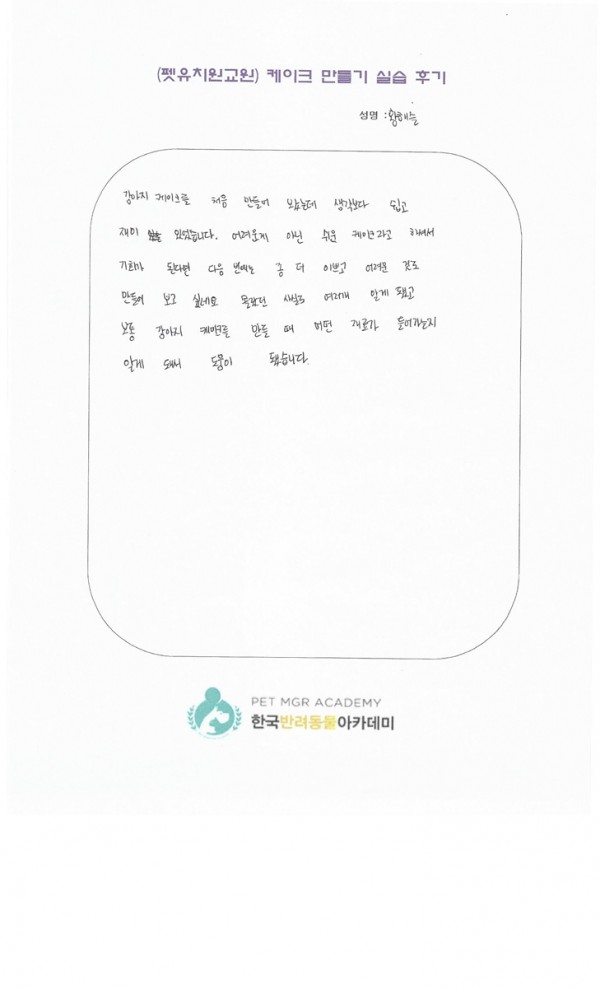 (펫유치원교원) 케이크 만들기 실습 후기
성명 : 황해슬
강아지 케이크를 처음 만들어 봤는데 생각보다 쉽고
재미 있었습니다. 어려운게 아닌 쉬운 케이크라고 하셔서
기회가 된다면 다음 번에는 좀 더 이쁘고 어려운 것도
만들어 보고 싶네요 몰랐던 사실도 여러개 알게 됐고
보통 강아지 케이크를 만들 때 어떤 재료가 들어가는지
알게 돼서 도움이 됐습니다.
PET MGR ACADEMY
한국반려동물아카데미